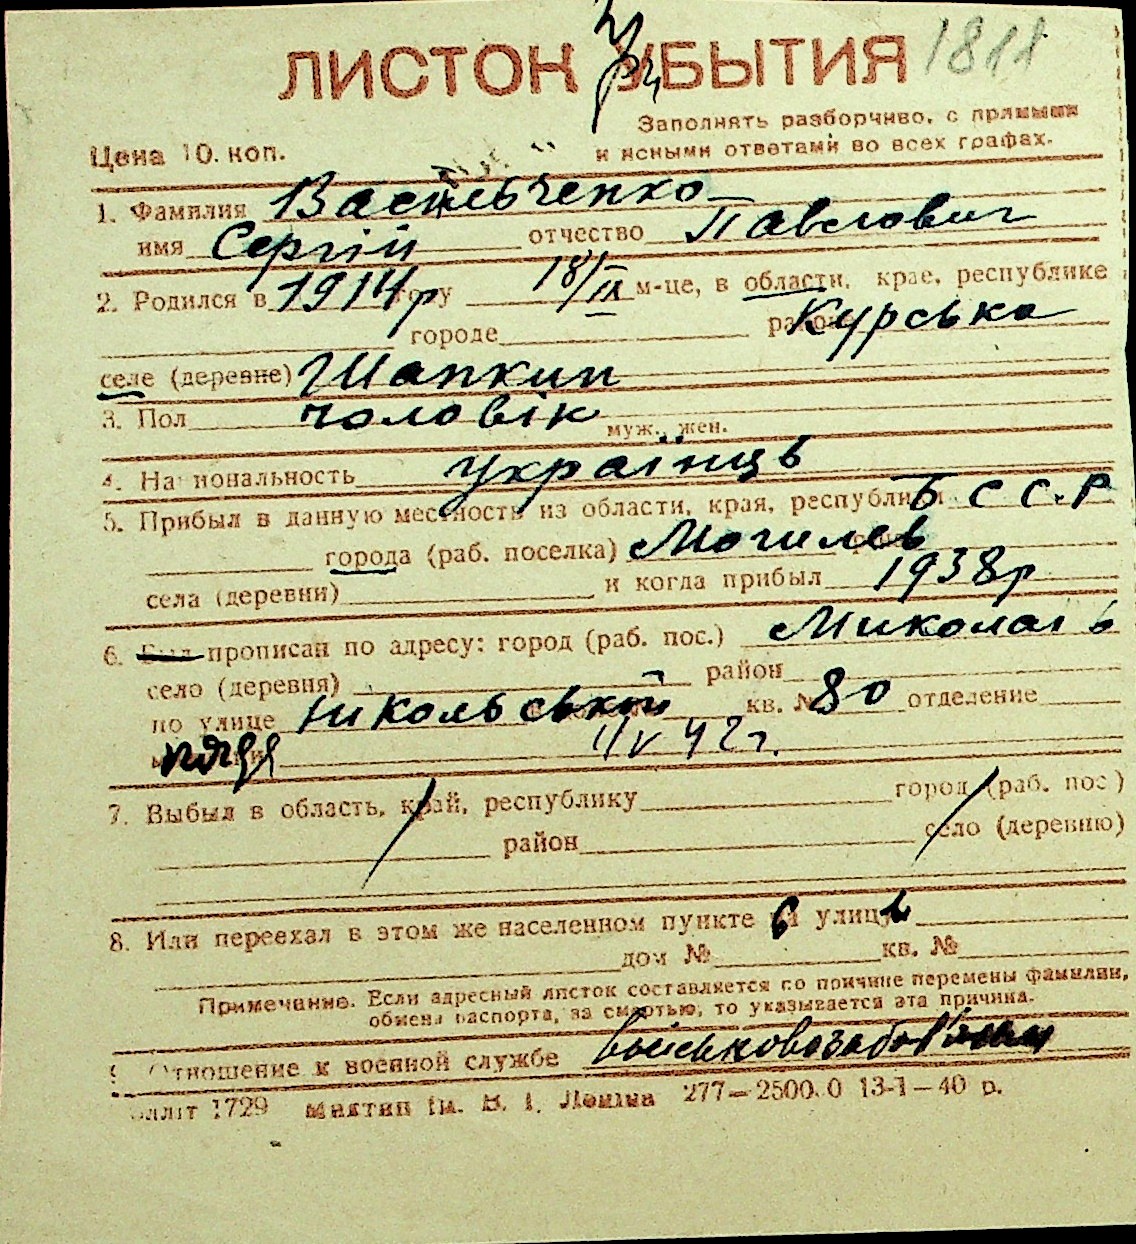 ЛИСТОК УБЫТИЯ 1811
Заполнять разборчиво, с прямыми
Цена 10. коп. и ясными ответами во всех графах.
1. Фамилия Васильченко
имя Сергій отчество Павлович
2. Родился в 1914р году 18/IX м-це, в области, крае, республике
городе районе Курська
селе (деревне) Шапкин
3. Пол чоловік муж., жен.
4. Национальность українць
5. Прибыл в данную местность из области, края, республики БССР
города (раб. поселка) Могилев
села (деревни) и когда прибыл 1938р
6. Был прописан по адресу: город (раб. пос.) Миколаів
село (деревня) район
по улице Никольській кв. № 80 отделение
милиции 11/V 42 г.
7. Выбыл в область, край, республику город (раб. пос)
район село (деревню)
8. Или переехал в этом же населенном пункте улицу
дом № кв. №
Примечание. Если адресный листок составляется по причине перемены фамилии,
обмена паспорта, за смертью, то указывается эта причина.
9. Отношение к военной службе військовозобов'язаний
1729 ім. В. І. Леніна 277—2500.0 13-1—40 р.